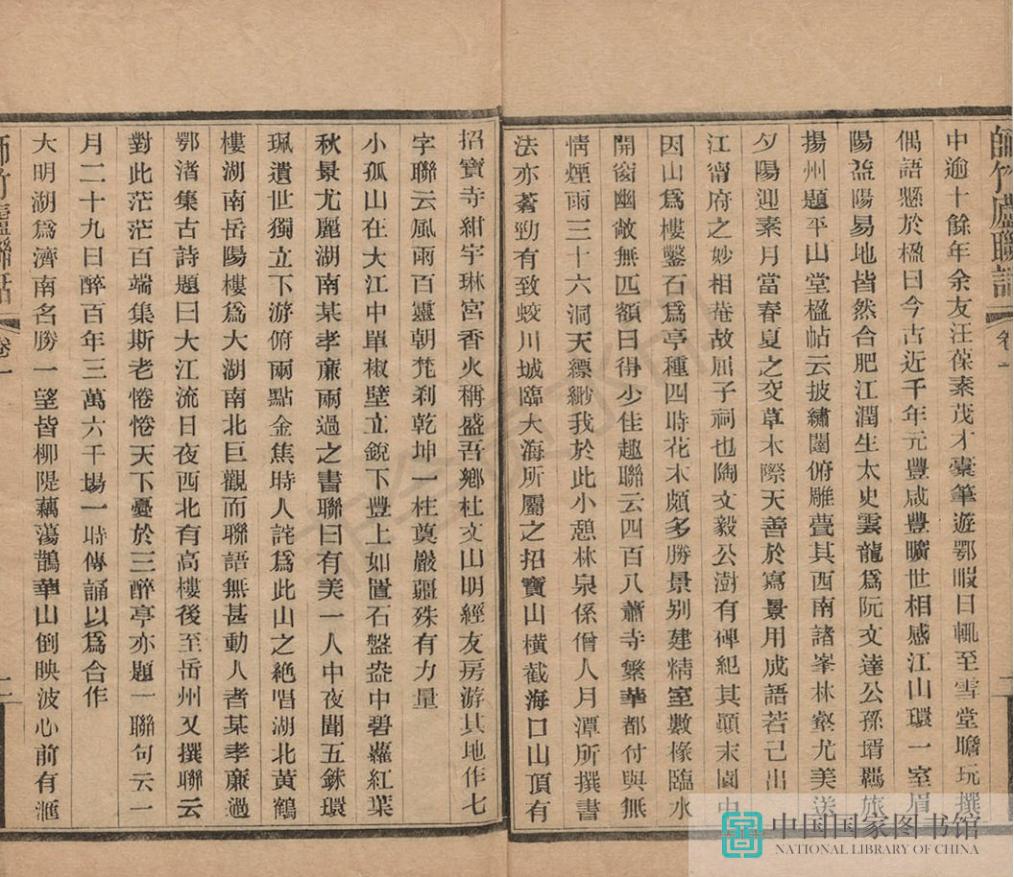 師竹廬聯話 卷一
中逾十餘年余友汪葆素茂才橐筆遊鄂暇日輒至雪堂瞻玩撰
偶語懸於楹曰今古近千年元豐咸豐曠世相感江山環一室眉
陽益陽易地皆然合肥江潤生太史雲龍爲阮文達公孫壻羈旅
揚州題平山堂楹帖云披繡闥俯雕甍其西南諸峯林壑尤美送
夕陽迎素月當春夏之交草木際天善於寫景用成語若己出
江甯府之妙相菴故屈子祠也陶文毅公澍有碑紀其顚末園中
因山爲樓鑿石爲亭種四時花木頗多勝景别建精室數椽臨水
開窗幽敞無匹額曰得少佳趣聯云四百八蕭寺繁華都付與無
情煙雨三十六洞天縹緲我於此小憩林泉係僧人月潭所撰書
法亦蒼勁有致蛟川城臨大海所屬之招寶山橫截海口山頂有
招寶寺紺宇琳宮香火稱盛吾鄉杜文山明經友房游其地作七
字聯云風雨百靈朝梵刹乾坤一柱奠嚴疆殊有力量
小孤山在大江中單椒壁立銳下豐上如置石盤盎中碧蘿紅葉
秋景尤麗湖南某孝廉兩過之書聯曰有美一人中夜聞五銖環
珮遺世獨立下游俯兩點金焦時人詫爲此山之絶唱湖北黃鶴
樓湖南岳陽樓爲大湖南北巨觀而聯語無甚動人者某孝廉過
鄂渚集古詩題曰大江流日夜西北有高樓後至岳州又撰聯云
對此茫茫百端集斯老惓惓天下憂於三醉亭亦題一聯句云一
月二十九日醉百年三萬六千場一時傳誦以爲合作
大明湖爲濟南名勝一望皆柳隄藕蕩鵲華山倒映波心前有滙
師竹廬聯話 卷一 二
中国国家图书馆
NATIONAL LIBRARY OF CHINA